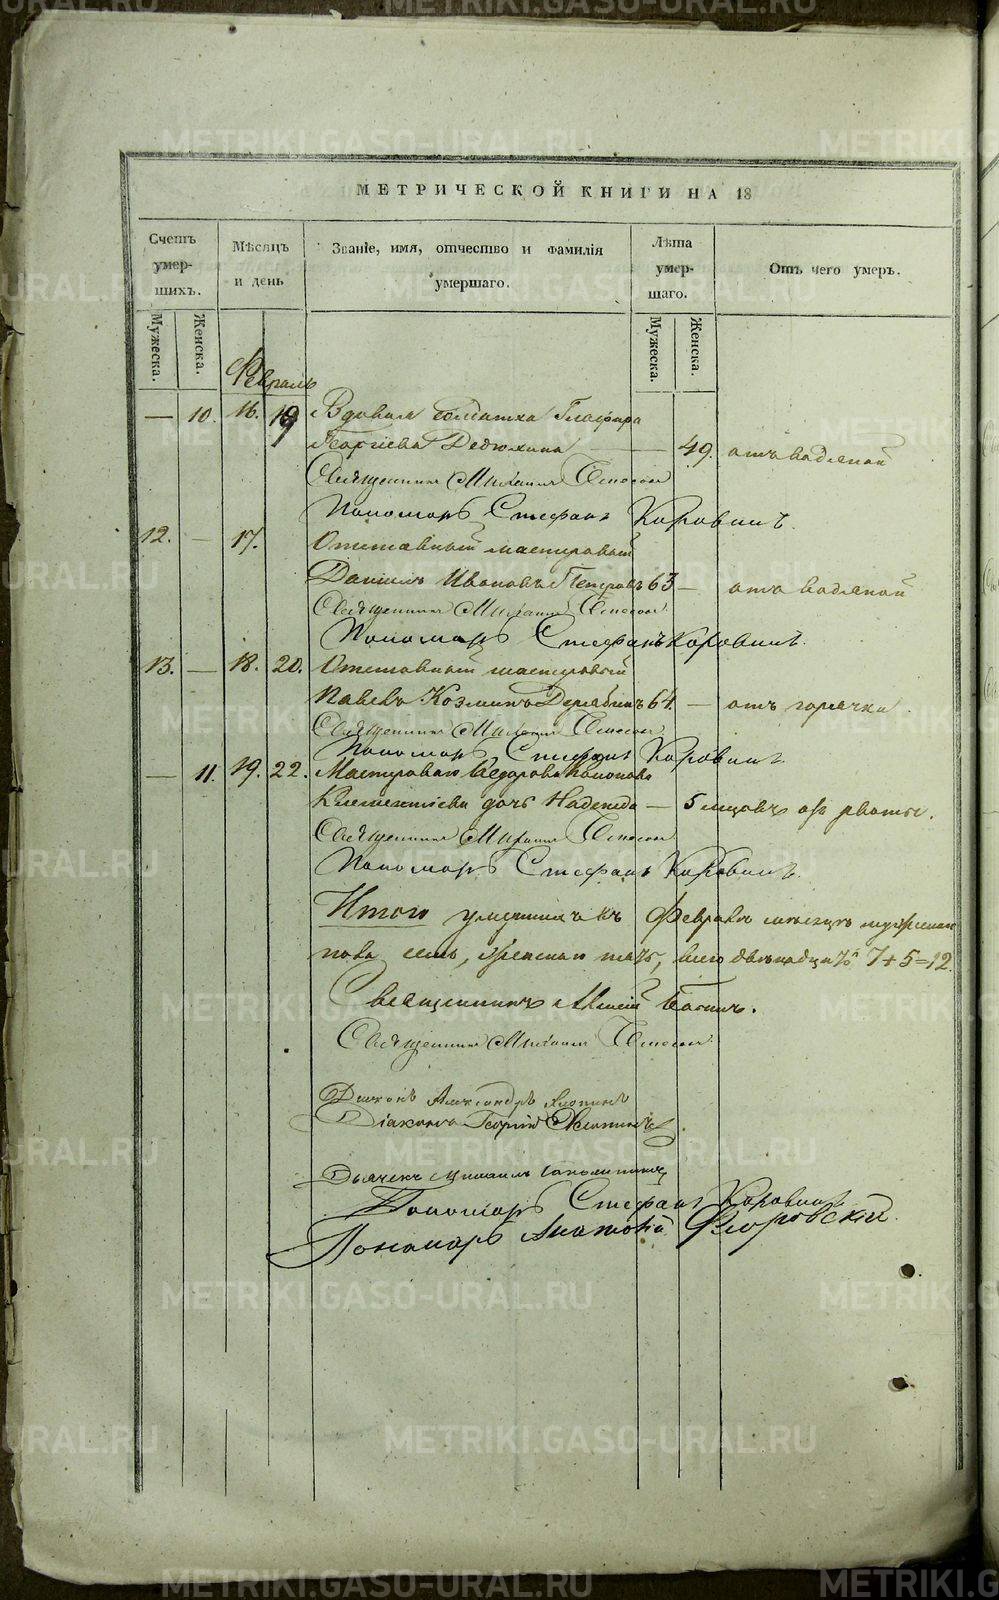 МЕТРИЧЕСКОЙ КНИГИ НА 18
Счетъ умер-шихъ.
Мѣсяцъ и день
Званіе, имя, отчество и фамилія умершаго.
Лѣта умер-шаго.
Отъ чего умеръ.
Мужеска.
Женска.
Мужеска.
Женска.
Февраль
— 10. 16. 19 Вдовая солдатка Глафира
Георгіева Дедюхина — 49. отъ водяной
Священникъ Михаилъ
Пономарь Стефанъ Коровинъ.
12. — 17. Отставный мастеровый
Даніилъ Ивановъ Петровъ 63 — отъ водяной
Священникъ Михаилъ
Пономарь Стефанъ Коровинъ.
13. — 18. 20. Отставный мастеровый
Павелъ Козминъ Дерябинъ 64. — отъ горячки.
Священникъ Михаилъ
Пономарь Стефанъ Коровинъ.
— 11. 19. 22. Мастероваго Ѳедора
дочь Надежда — 5 мѣсцовъ отъ рвоты.
Священникъ Михаилъ
Пономарь Стефанъ Коровинъ.
Итого умершихъ въ Февралѣ мѣсяцѣ мужеска
пола семь, женскаго пять, всего двѣнадцать 7+5=12.
Священникъ
Священникъ Михаилъ
Діаконъ Александръ
Діаконъ Георгій
Дьячекъ Михаилъ
Пономарь Стефанъ Коровинъ
Пономарь Анатолій Флоровскій.
METRIKI.GASO-URAL.RU